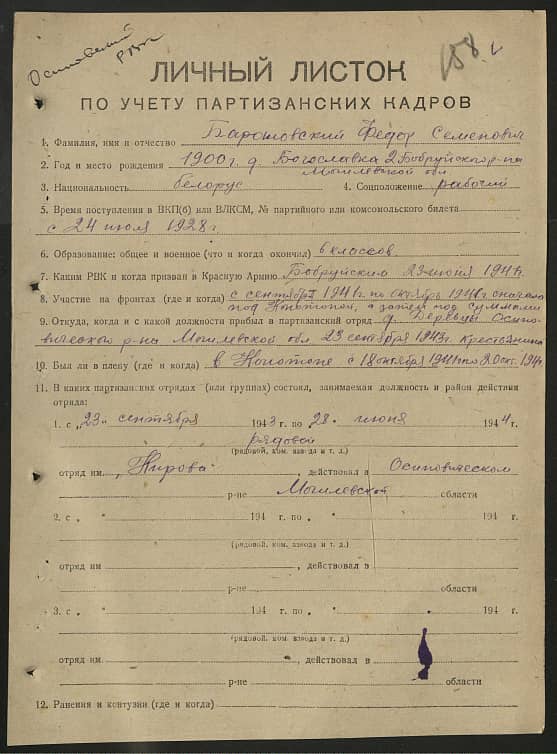 Осиповский
РВК
158
ЛИЧНЫЙ ЛИСТОК
ПО УЧЕТУ ПАРТИЗАНСКИХ КАДРОВ
1. Фамилия, имя и отчество Барановский Федор Семенович
2. Год и место рождения 1900 г. д Богославка 2 Бобруйского р-на
Могилевской обл
3. Национальность белорус 4. Соцположение рабочий
5. Время поступления в ВКП(б) или ВЛКСМ, № партийного или комсомольского билета
с 24 июля 1928 г
6. Образование: общее и военное (что и когда окончил) 6 классов
7. Каким РВК и когда призван в Красную Армию Бобруйским 23 июня 1941 г.
8. Участие на фронтах (где и когда) с сентября 1941 г. по октябрь 1941 г сначала
под Конотопом, а затем под Сумами
9. Откуда, когда и с какой должности прибыл в партизанский отряд д. Осипо-
вического р-на Могилевской обл 23 сентября 1943 г. Крестьянина
10. Был ли в плену (где и когда) в Конотопе с 18 октября 1941 по 20 окт. 194
11. В каких партизанских отрядах (или группах) состоял, занимаемая должность и район действия
отряда:
1. с „23" сентября 1943 г. по „28" июня 1944 г.
рядовой
(рядовой, ком. взвода и т. д.)
отряд им. „Кирова" , действовал в Осиповическом
р-не Могилевской области
2. с „ " 194 г. по „ " 194 г.
(рядовой, ком. взвода и т. д.)
отряд им , действовал в
р-не области
3. с „ " 194 г. по „ " 194 г.
(рядовой, ком. взвода и т. д.)
отряд им. , действовал в
р-не области
12. Ранения и контузии (где и когда)